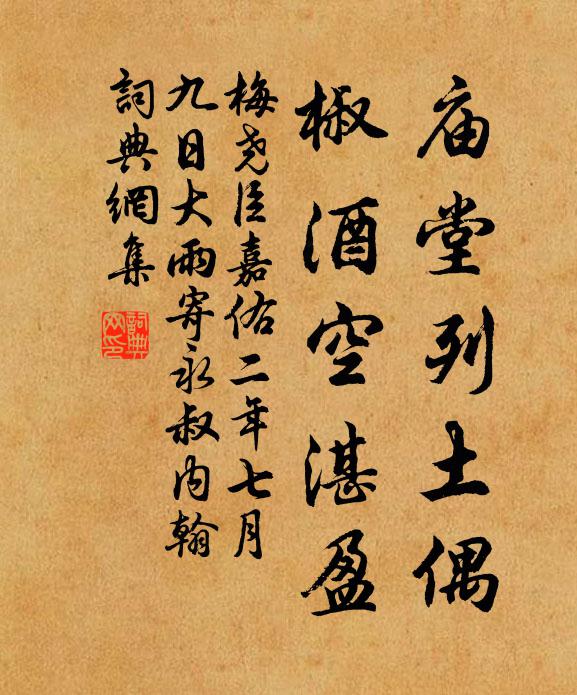 庙堂列土偶
椒酒空湛盈
梅尧臣嘉佑二年七月
九日大雨寄永叔内翰
詞典網集
詞典網印